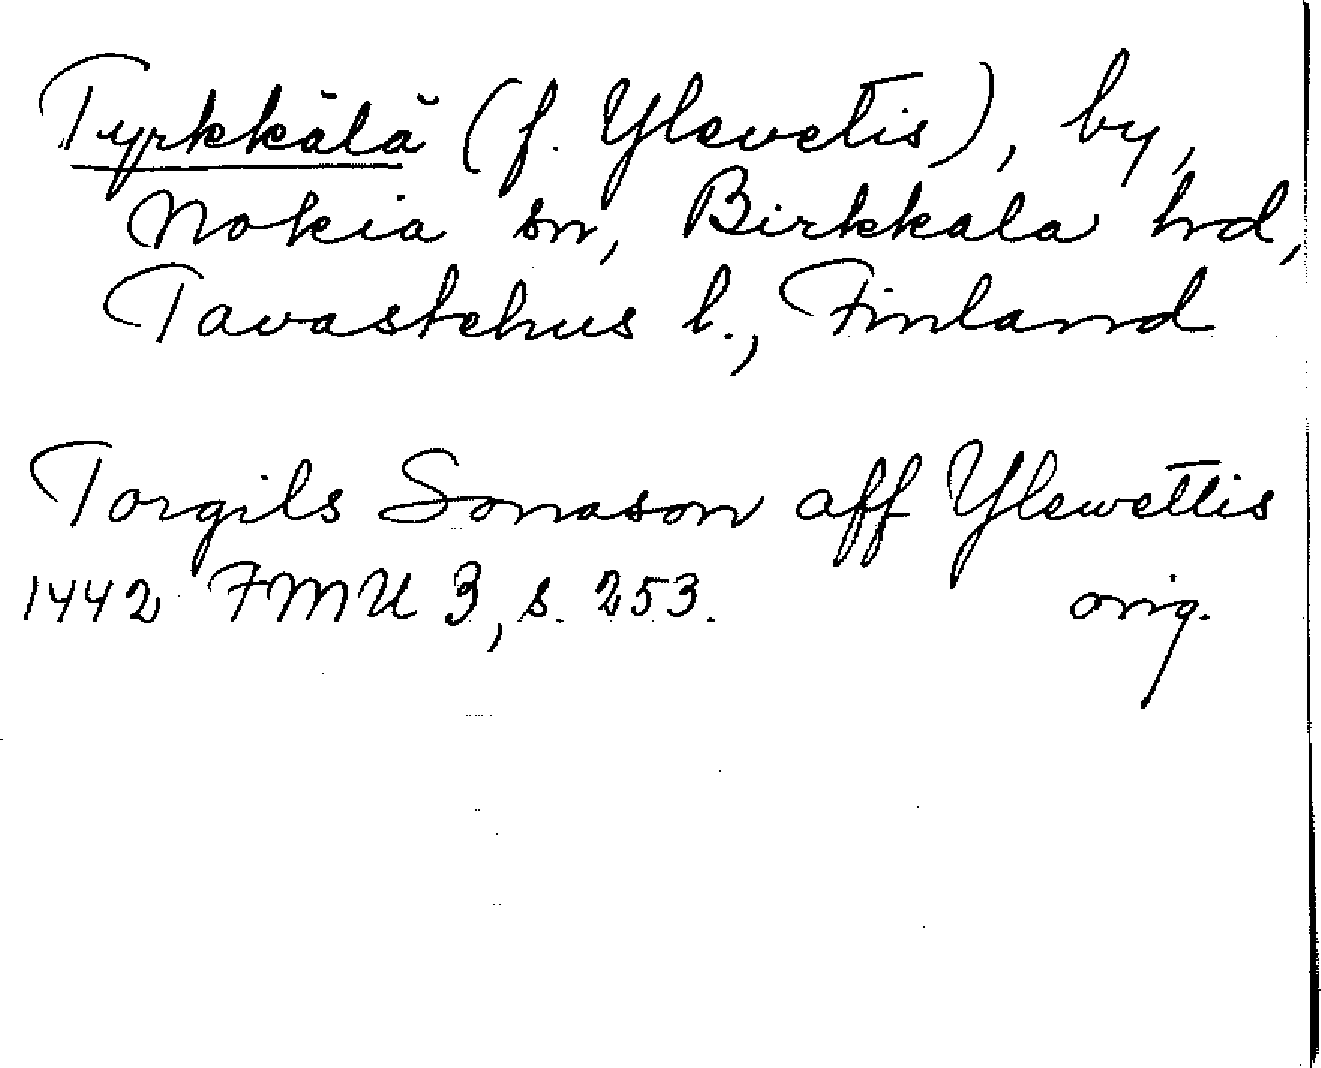 Tyrkkälä (f. Ylevetis), by,
Nokia sn, Birkkala hrd,
Tavastehus l., Finland
Torgils Sonason aff Ylewettis
1442 FMU 3, s. 253. orig.